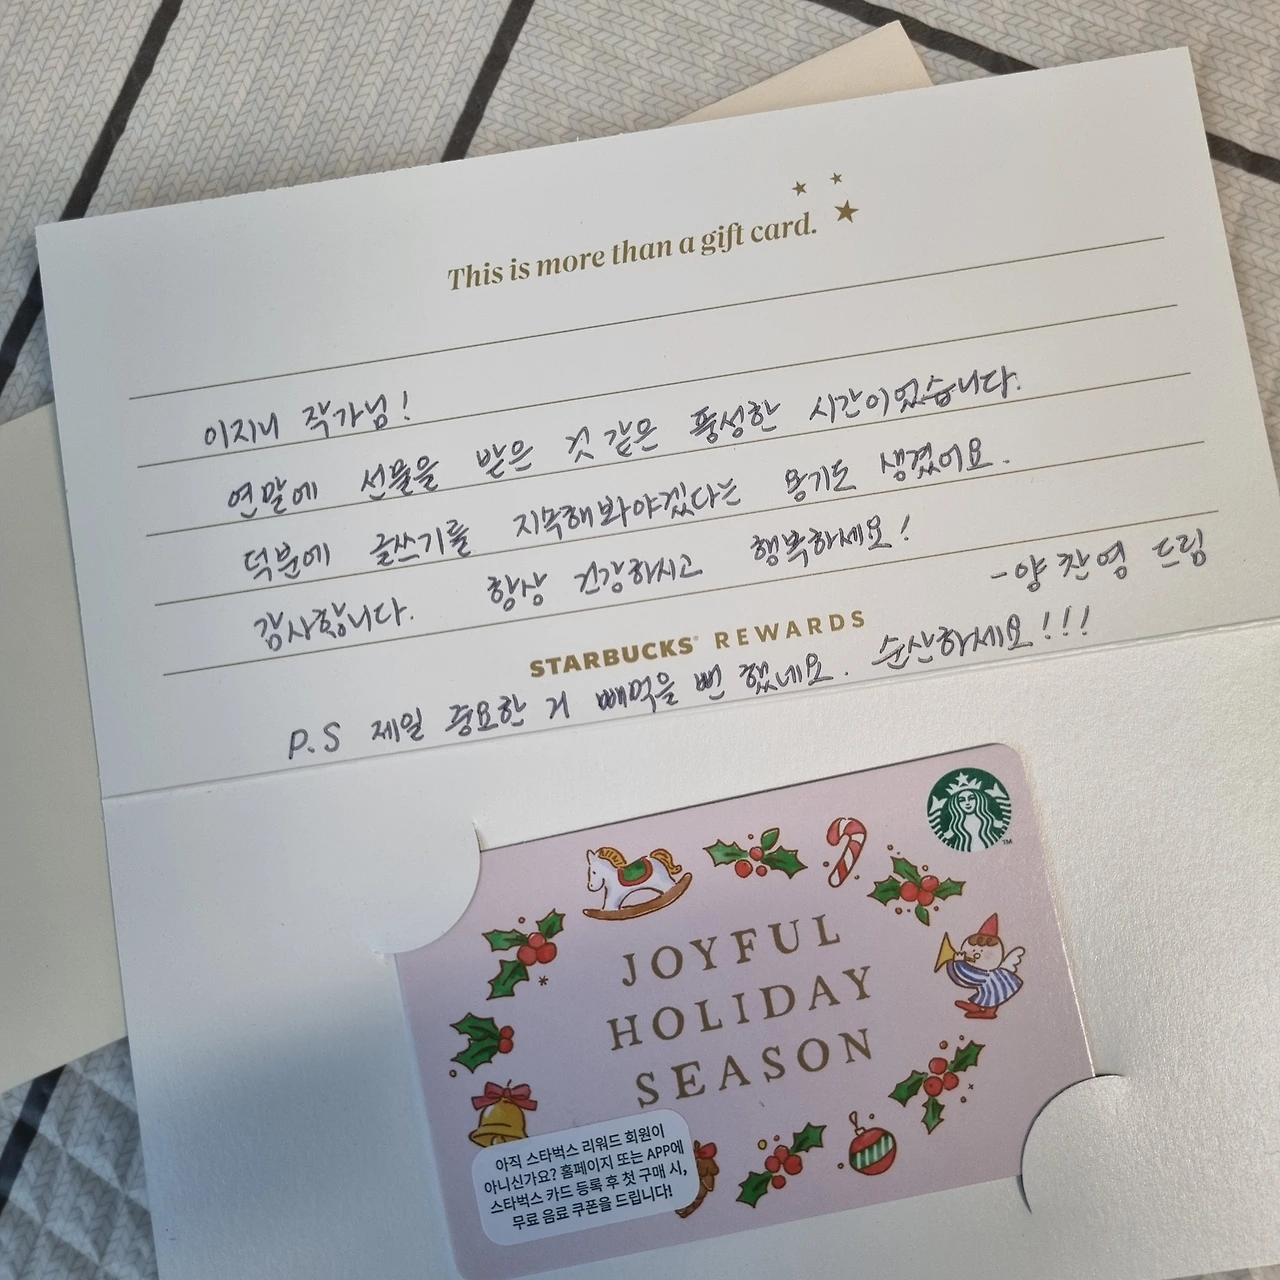 This is more than a gift card.
이지니 작가님!
연말에 선물을 받은 것 같은 풍성한 시간이었습니다.
덕분에 글쓰기를 지속해봐야겠다는 용기도 생겼어요.
감사합니다. 항상 건강하시고 행복하세요!
-양찬영 드림
STARBUCKS® REWARDS
P.S 제일 중요한 거 빼먹을 뻔 했네요. 순산하세요!!!
JOYFUL
HOLIDAY
SEASON
아직 스타벅스 리워드 회원이
아니신가요? 홈페이지 또는 APP에
스타벅스 카드 등록 후 첫 구매 시,
무료 음료 쿠폰을 드립니다!